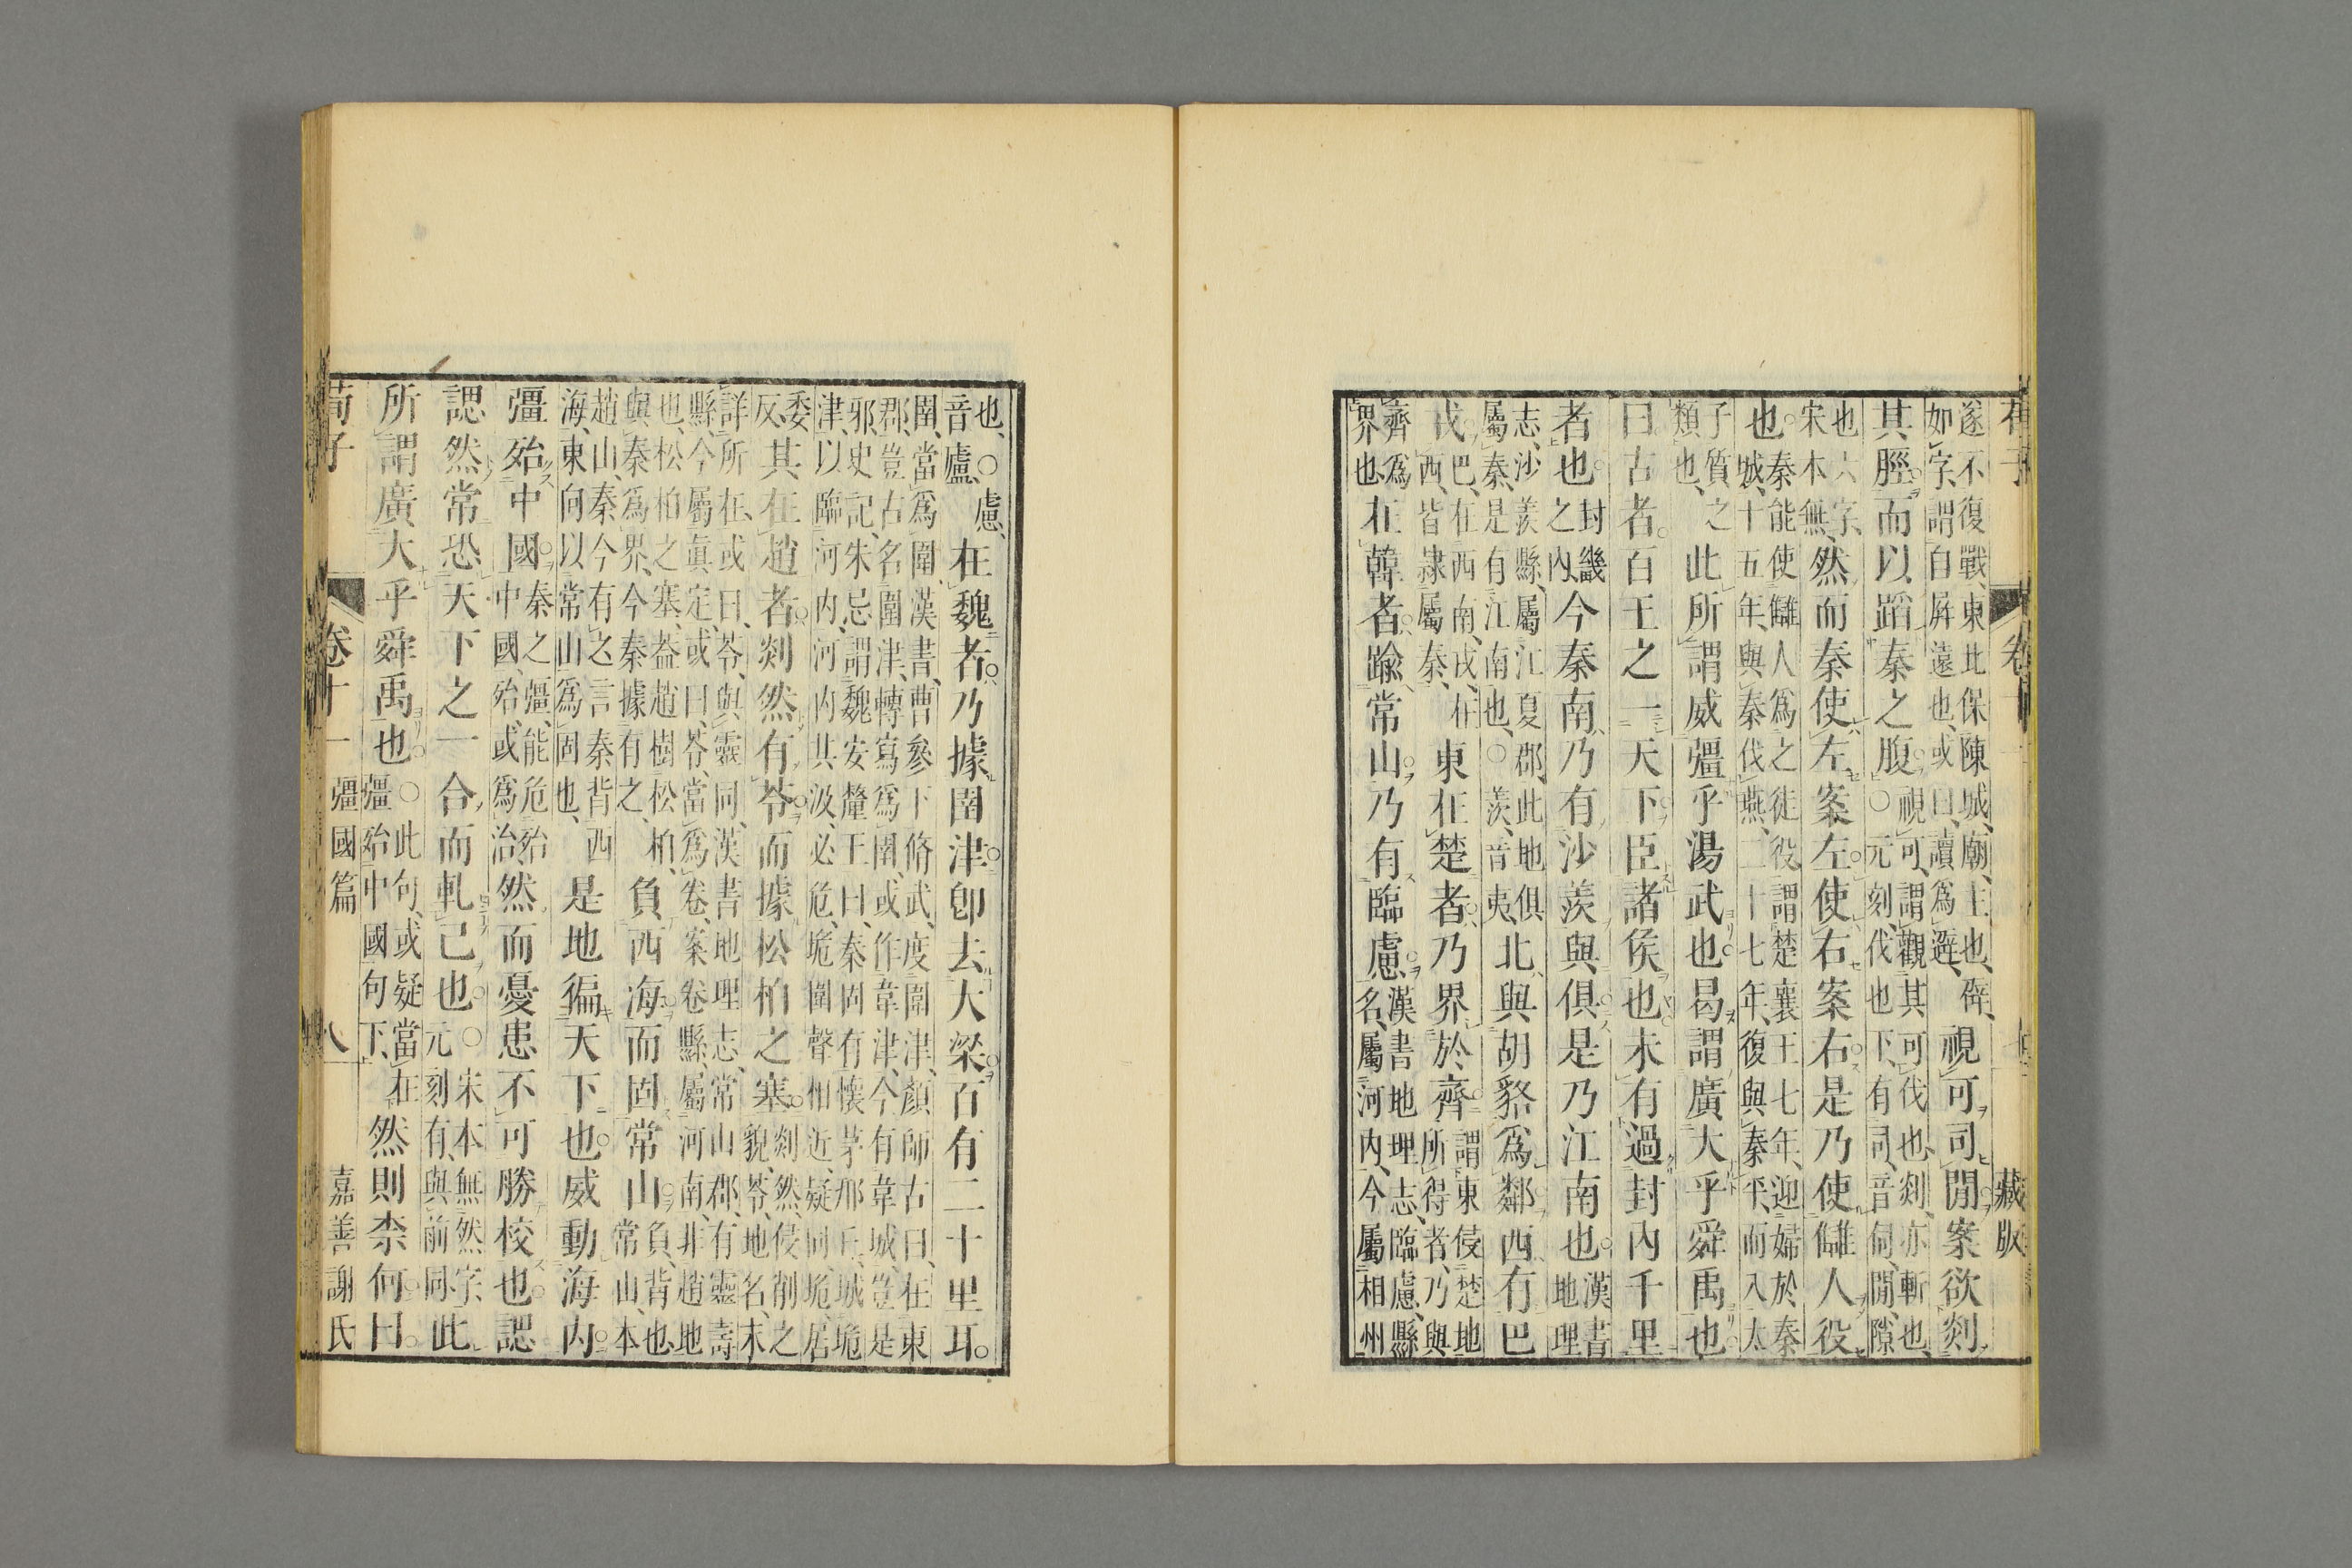 荀子 卷十一 藏版
遂不復戰東北保陳城廟主也辟
如字謂自屏遠也或曰讀爲避 視可司閒案欲剡
其脛而以蹈秦之腹 視可謂觀其可伐也剡亦斬也
○元刻伐也下有司音伺閒隙
也六字
宋本無 然而秦使左案左使右案右是乃使讎人役
也 秦能使讎人爲之徒役謂楚襄王七年迎婦於秦
城十五年與秦伐燕二十七年復與秦平而入太
子質之
類也 此所謂威彊乎湯武也曷謂廣大乎舜禹也
曰古者百王之一天下臣諸侯也未有過封內千里
者也 封畿
之內 今秦南乃有沙羨與俱是乃江南也 漢書
地理
志沙羨縣屬江夏郡此地俱
屬秦是有江南也○羨音夷 北與胡貉爲鄰西有巴
戎 巴在西南戎在
西皆隷屬秦 東在楚者乃界於齊 謂東侵楚地
所得者乃與
齊爲
界也 在韓者踰常山乃有臨慮 漢書地理志臨慮縣
名屬河內今屬相州
也○慮
音廬 在魏者乃據圉津卽去大梁百有二十里耳
圉當爲圍漢書曹參下脩武度圍津顏師古曰在東
郡豈古名圍津轉寫爲圉或作韋津今有韋城豈是
邪史記朱忌謂魏安釐王曰秦固有懷茅邢丘城垝
津以臨河內河內共汲必危垝圍聲相近疑同垝居
委
反 其在趙者剡然有苓而據松柏之塞 剡然侵削之
貌苓地名未
詳所在或曰苓與靈同漢書地理志常山郡有靈壽
縣今屬眞定或曰苓當爲卷案卷縣屬河南非趙地
也松柏之塞蓋趙樹松柏
與秦爲界今秦據有之 負西海而固常山 負背也
常山本
趙山秦今有之言秦背西
海東向以常山爲固也 是地徧天下也威動海內
彊殆中國 秦之彊能危殆
中國殆或爲治 然而憂患不可勝校也諰
諰然常恐天下之一合而軋己也 ○宋本無然字
元刻有與前同 此
所謂廣大乎舜禹也 ○此句或疑當在
彊殆中國句下 然則奈何曰
荀子 卷十一 彊國篇 八 嘉善謝氏